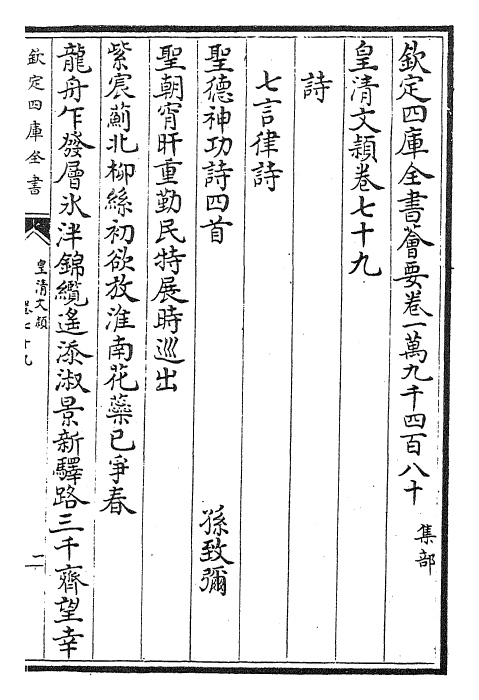 欽定四庫全書薈要卷一萬九千四百八十 集部
皇清文穎卷七十九
詩
七言律詩
聖德神功詩四首 孫致彌
聖朝宵旰重勤民特展時巡出
紫宸薊北柳絲初欲放淮南花藥已爭春
龍舟乍發層氷泮錦纜遙添淑景新驛路三千齊望幸
欽定四庫全書
皇清文穎
卷七十九
二